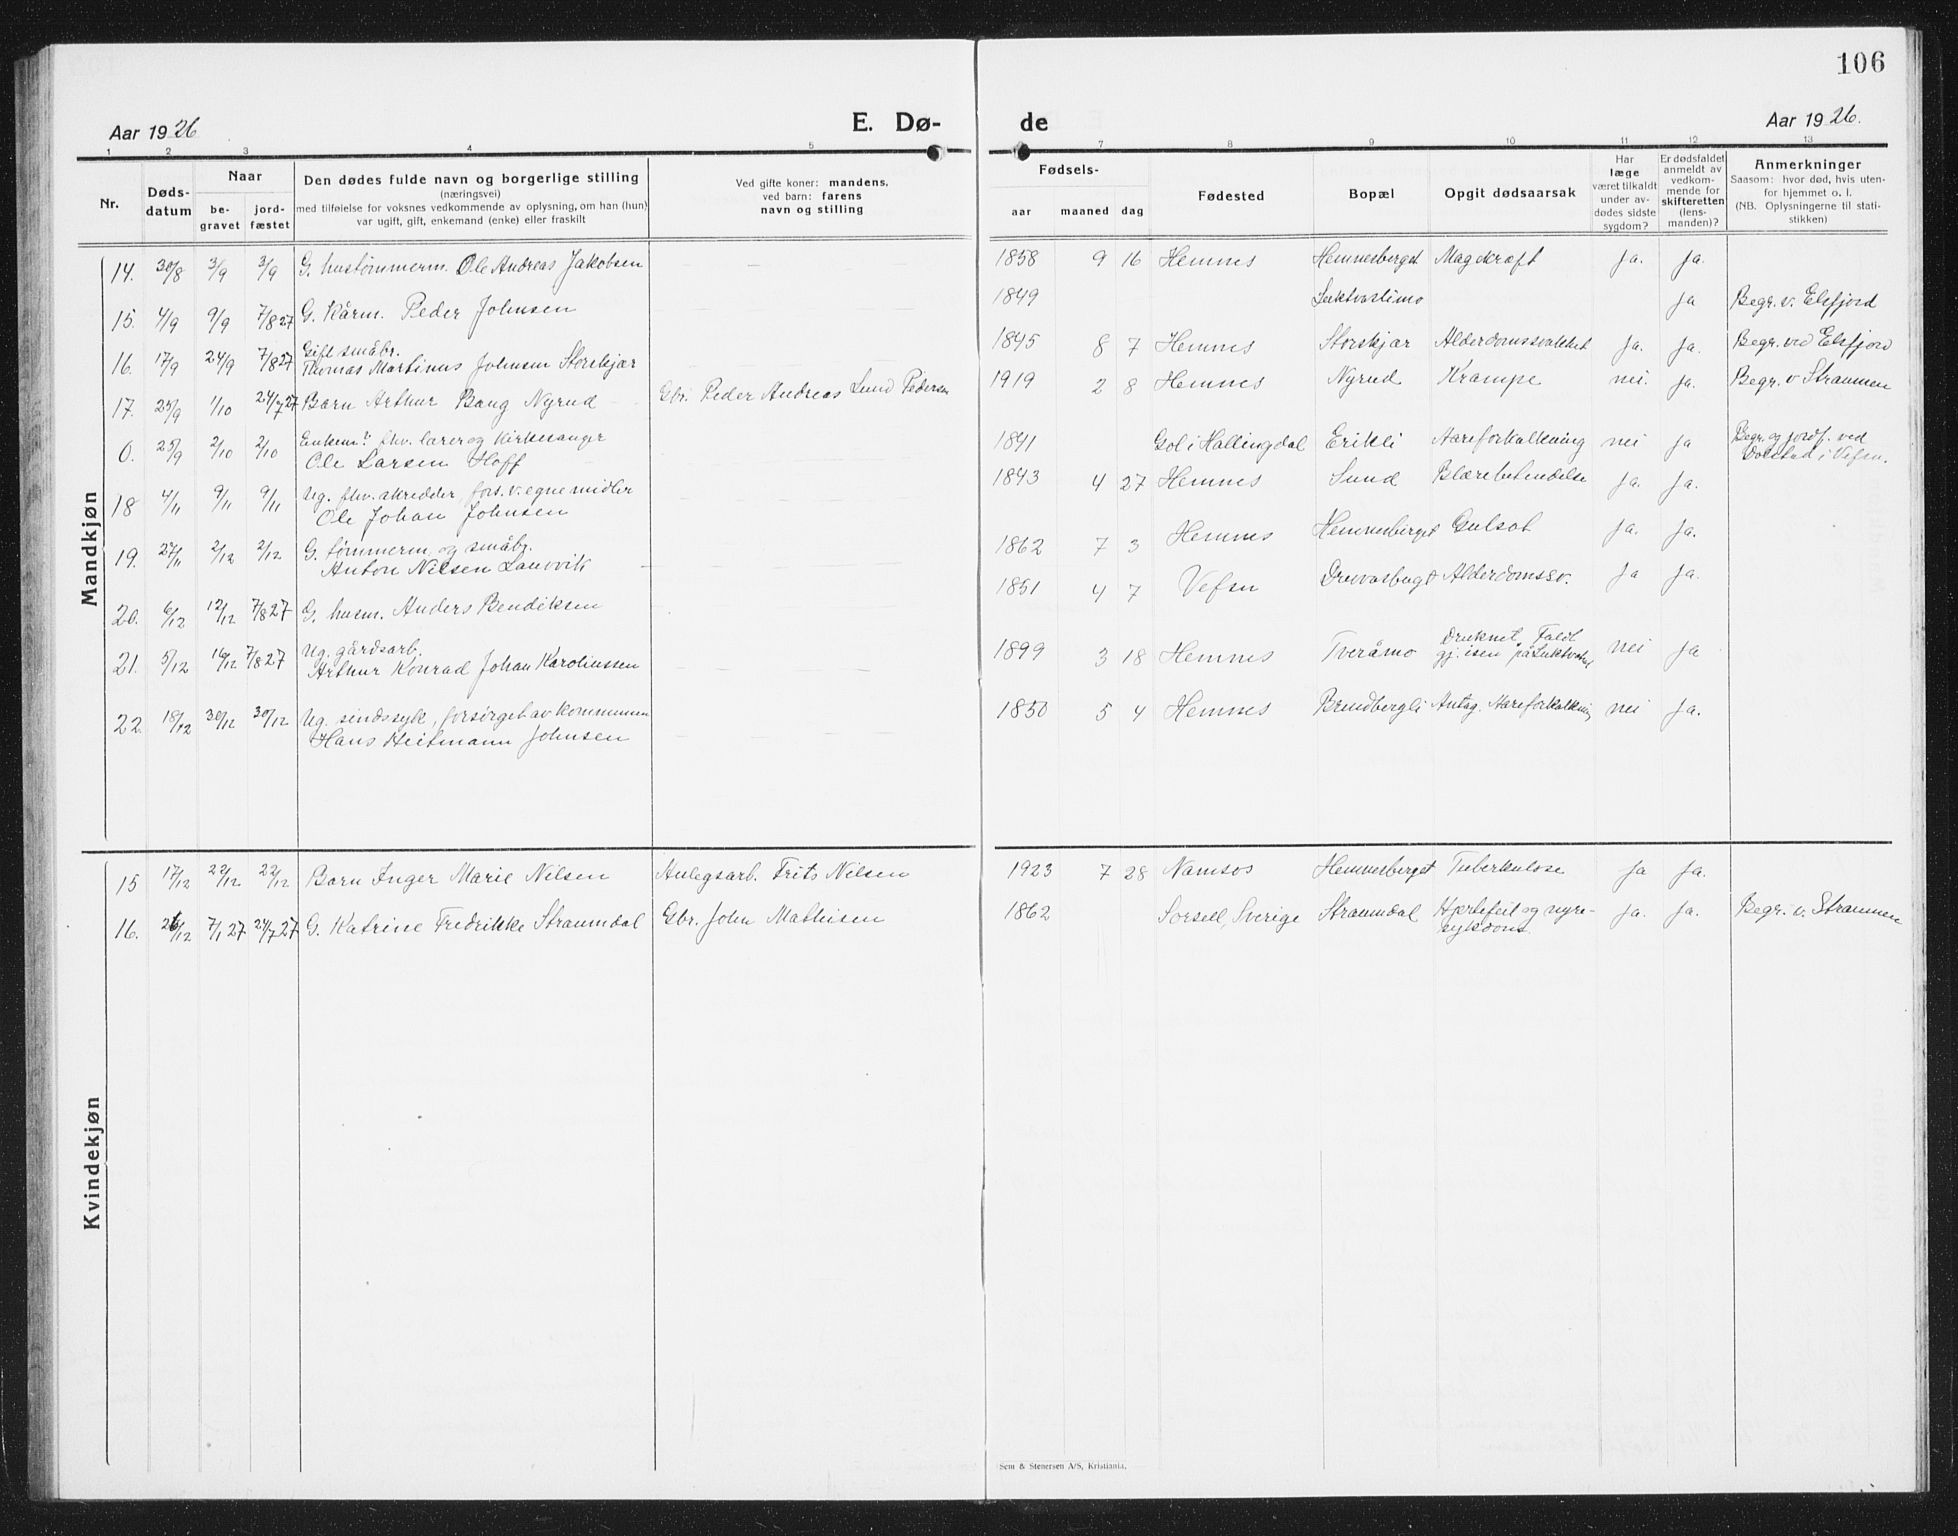 106
Aar 1926
E. Dø-
de
Aar 1926.
1 2 3 4 5 7 8 9 10 11 12 13
Nr.
Døds-
datum
Naar
be-
gravet
jord-
fæstet
Den dødes fulde navn og borgerlige stilling
(næringsvei)
med tilføielse for voksnes vedkommende av oplysning, om han (hun)
var ugift, gift, enkemand (enke) eller fraskilt
Ved gifte koner: mandens,
ved barn: farens
navn og stilling
Fødsels-
aar maaned dag
Fødested
Bopæl
Opgit dødsaarsak
Har
læge
været tilkaldt
under av-
dødes sidste
sygdom?
Er dødsfaldet
anmeldt av
vedkom-
mende for
skifteretten
(lens-
manden)?
Anmerkninger
Saasom: hvor død, hvis uten-
for hjemmet o. l.
(NB. Oplysningerne til stati-
stikken)
Mandkjøn
14. 30/8 3/9 3/9 G. hustømmerm. Ole Andreas Jakobsen 1858 9 16 Hemnes Hemnesberget Magekræft ja. ja.
15. 4/9 9/9 7/8 27 G. Kårm. Peder Johnsen 1849 Luktvastimo ja Begr. v. Elsfjord
16. 17/9 24/9 7/8 27 Gift småbr.
Thomas Martinus Johnsen Storskjær 1845 8 7 Hemnes Storskjær Alderdomssvakhet ja. ja. Begr. ved Elsfjord
17. 25/9 1/10 24/7 27 Barn Arthur Bang Nyrud Gbr. Peder Andreas Lund Pedersen 1919 2 8 Hemnes Nyrud Krampe nei. ja. Begr. v Straumen
0. 25/9 2/10 2/10 Enkem. fhv. lærer og Kirkesanger
Ole Larsen Hoff 1841 Gol i Hallingdal Erikli Aareforkalkning nei ja Begr. og jordf. ved
Dolstad i Vefsn.
18 4/11 9/11 9/11 Ug. fhv. skredder, fors. v. egne midler
Ole Johan Johnsen 1843 4 27 Hemnes Sund Blærebetendelse ja. ja.
19. 27/11 2/12 2/12 G. tømmerm. og småbr.
Anton Nilsen Lauvvik 1862 7 3 Hemnes Hemnesberget Gulsot ja. ja.
20. 6/12 12/12 7/8 27 G. husm. Anders Bendiksen 1851 4 7 Vefsn Drevvasbugt Alderdomssv. ja ja.
21. 5/12 16/12 7/8 27 Ug. gårdsarb.
Arthur Konrad Johan Karoliussen 1899 3 18 Hemnes Tveråmo Druknet, Faldt
gj. isen på Luktvatnet nei ja
22. 18/12 30/12 30/12 Ug. sindssyk, forsørget av kommunen
Hans Heitmann Johnsen 1850 5 4 Hemnes Brendbergli Antag. Aareforkalkning nei ja.
Kvindekjøn
15 17/12 22/12 22/12 Barn Inger Marie Nilsen Anlegsarb. Frits Nilsen 1923 7 28 Namsos Hemnesberget Tuberkulose ja ja.
16. 26/12 7/1 27 24/7 27 G. Katrine Fredrikke Straumdal Gbr. John Mathisen 1862 Sorsele, Sverige Straumdal Hjertefeil og nyre-
sykdom. ja. ja. Begr. v. Straumen
Sem & Stenersen A/S, Kristiania.